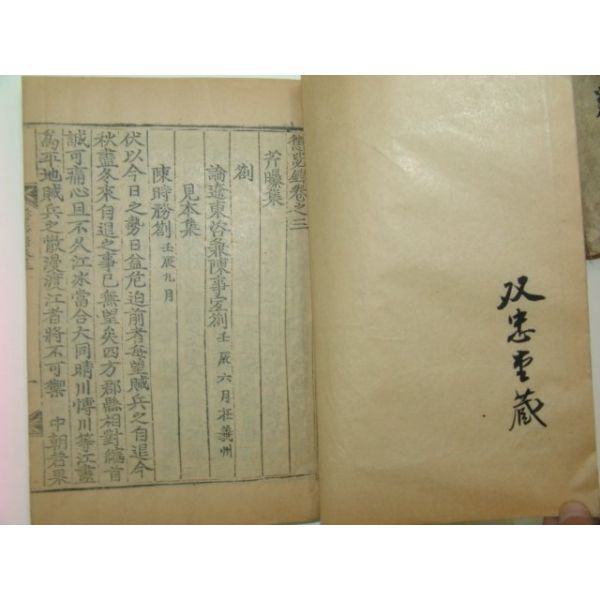 双忠堂藏
懲毖錄卷之三
芹曝集
劄
論遼東咨兼陳事宜劄 壬辰六月在義州
見本集
陳時務劄 壬辰九月
伏以今日之勢日益危迫前者每望賊兵之自退今
秋盡冬來自退之事已無望矣四方郡縣相對首
誠可痛心且不久江冰當合大同晴川博川等江盡
為平地賊兵之散漫渡江者將不可禦 中朝若果